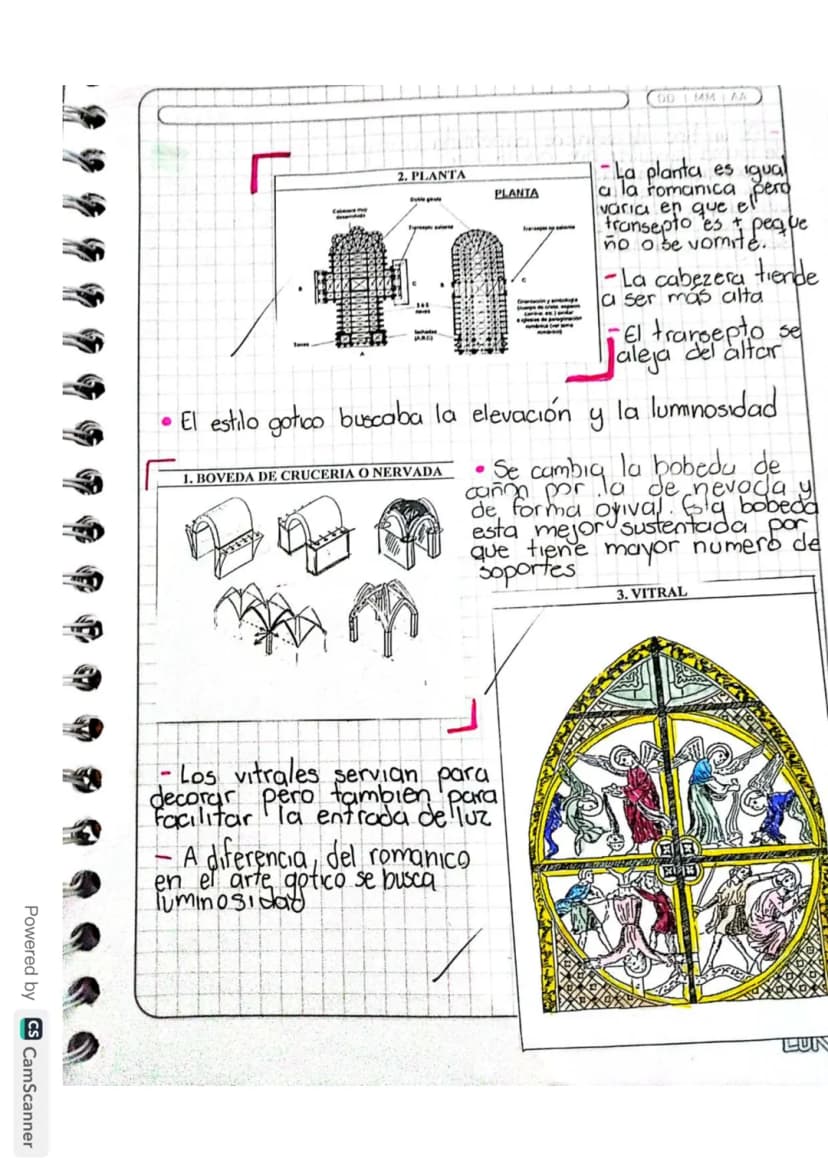 DD MM AA
2. PLANTA
PLANTA
Cabecera muy
desarrollada
Doble girola
Transepto saliente
Transepto no saliente
Torres
A
B
C
B
C
- La planta es igual
a la romanica pero
varia en que el
transepto es + peque
ño o se vomite.
- La cabezera tiende
a ser más alta
- El transepto se
aleja del altar
• El estilo gotico buscaba la elevación y la lumnosidad
1. BOVEDA DE CRUCERIA O NERVADA
• Se cambia la bobeda de
cañon por la de nevada y
de forma ojival. Esta bobeda
esta mejor sustentada por
que tiene mayor numero de
soportes
3. VITRAL
- Los vitrales servian para
decorar pero tambien para
facilitar la entrada de luz
- A diferencia, del romanico
en el arte gotico se busca
luminosidad
Powered by CS CamScanner